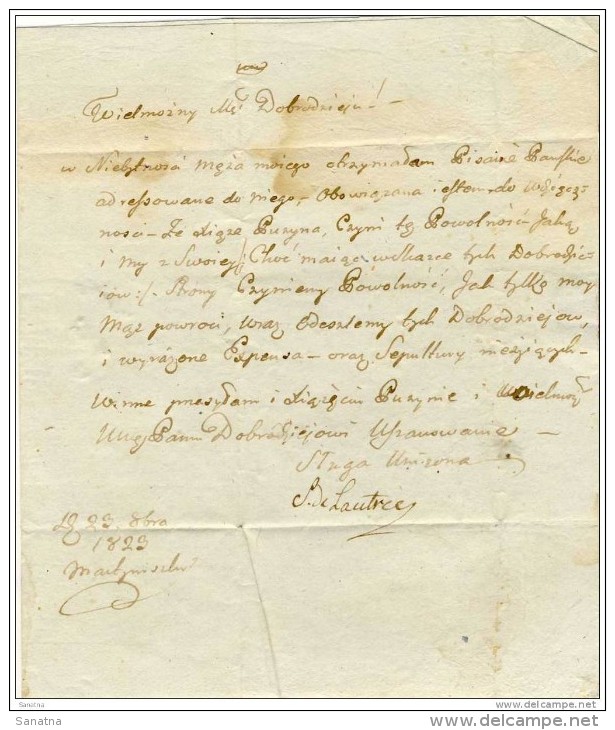 Wielmożny Mci Dobrodzieju! —
w Niebytność męża moiego otrzymałam Pisanie Pańskie
adressowane do niego, Obowiązana iestem do wdzięcz-
ności — Że Xiąże Puzyna, Czyni tę Powolność Jaką
i my z Swoiey /: Choć maiąc wskazce tych Dobrodzie-
iów :/ Strony Czyniemy Powolność, Jak tylko moy
Mąż powroci, wraz odeszlemy tych Dobrodziejow,
i wyrażone Expensa — oraz Sepultury nieżyiących —
Winne przesyłam i Xiążęciu Puzynie i Wielmoż
Panu Dobrodziejowi Uszanowanie —
Sługa Uniżona
S. de Lautrec
D 23. 8bra
1823
Sanatna
www.delcampe.net
Sanatna
www.delcampe.net